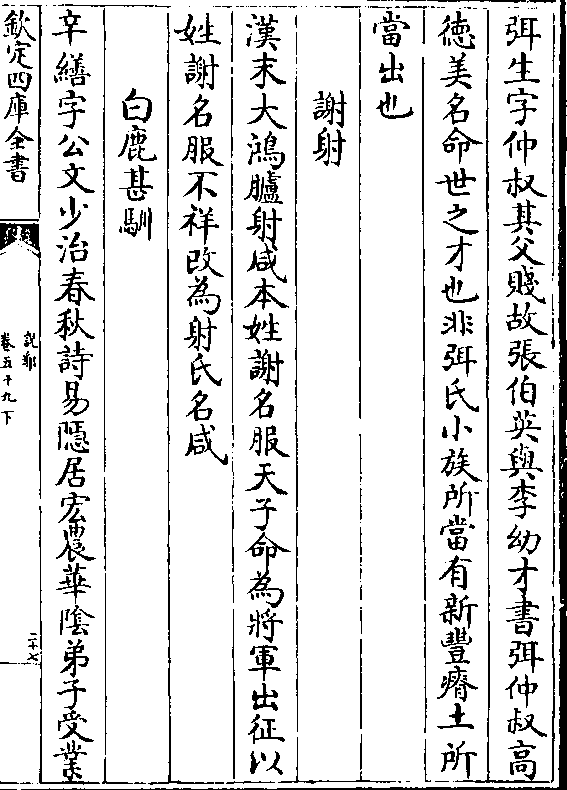 弭生字仲叔其父賤故張伯英與李幼才書弭仲叔高
徳美名命世之才也非弭氏小族所當有新豐瘠土所
當出也
謝射
漢末大鴻臚射咸本姓謝名服天子命為將軍出征以
姓謝名服不祥改為射氏名咸
白鹿甚馴
辛繕字公文少治春秋詩易隱居宏農華陰弟子受業
欽定四庫全書
説郛
卷五十九下
二十七